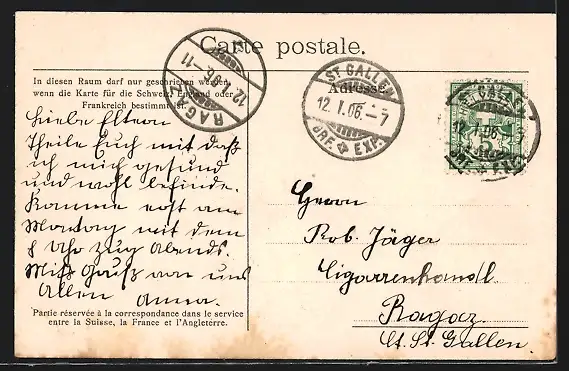 Carte postale.
In diesen Raum darf nur geschrieben werden,
wenn die Karte für die Schweiz, England oder
Frankreich bestimmt ist.
Adresse.
RAGAZ
12. I. 06. - 11
ST. GALLEN
12. I. 06. - 7
BRF. EXP.
ST. GALLEN
12. I. 06. - 7
BRF. EXP.
5
Liebe Eltern
Theile Euch mit daß
ich mich gesund
und wohl befinde.
Komme erst am
Montag mit dem
8 Uhr Zug Abends.
Mit Gruß von uns
Allen Anna.
Partie réservée à la correspondance dans le service
entre la Suisse, la France et l'Angleterre.
Herrn
Rob. Jäger
Cigarrenhandl.
Ragaz.
Ct. St. Gallen.